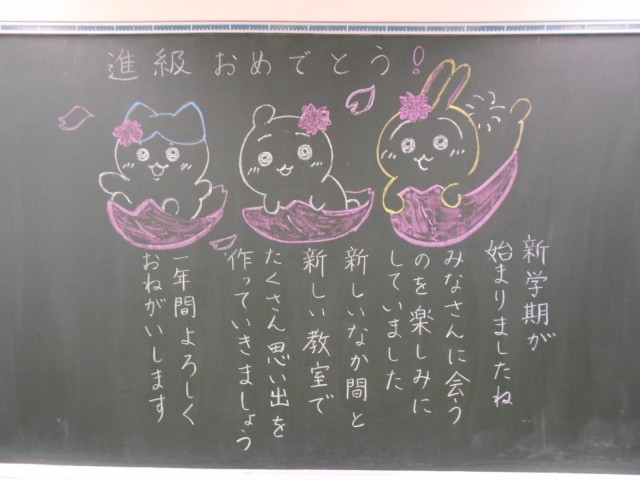 進級おめでとう!
新学期が
始まりましたね
みなさんに会う
のを楽しみに
していました
新しいなか間と
新しい教室で
たくさん思い出を
作っていきましょう
一年間よろしく
おねがいします